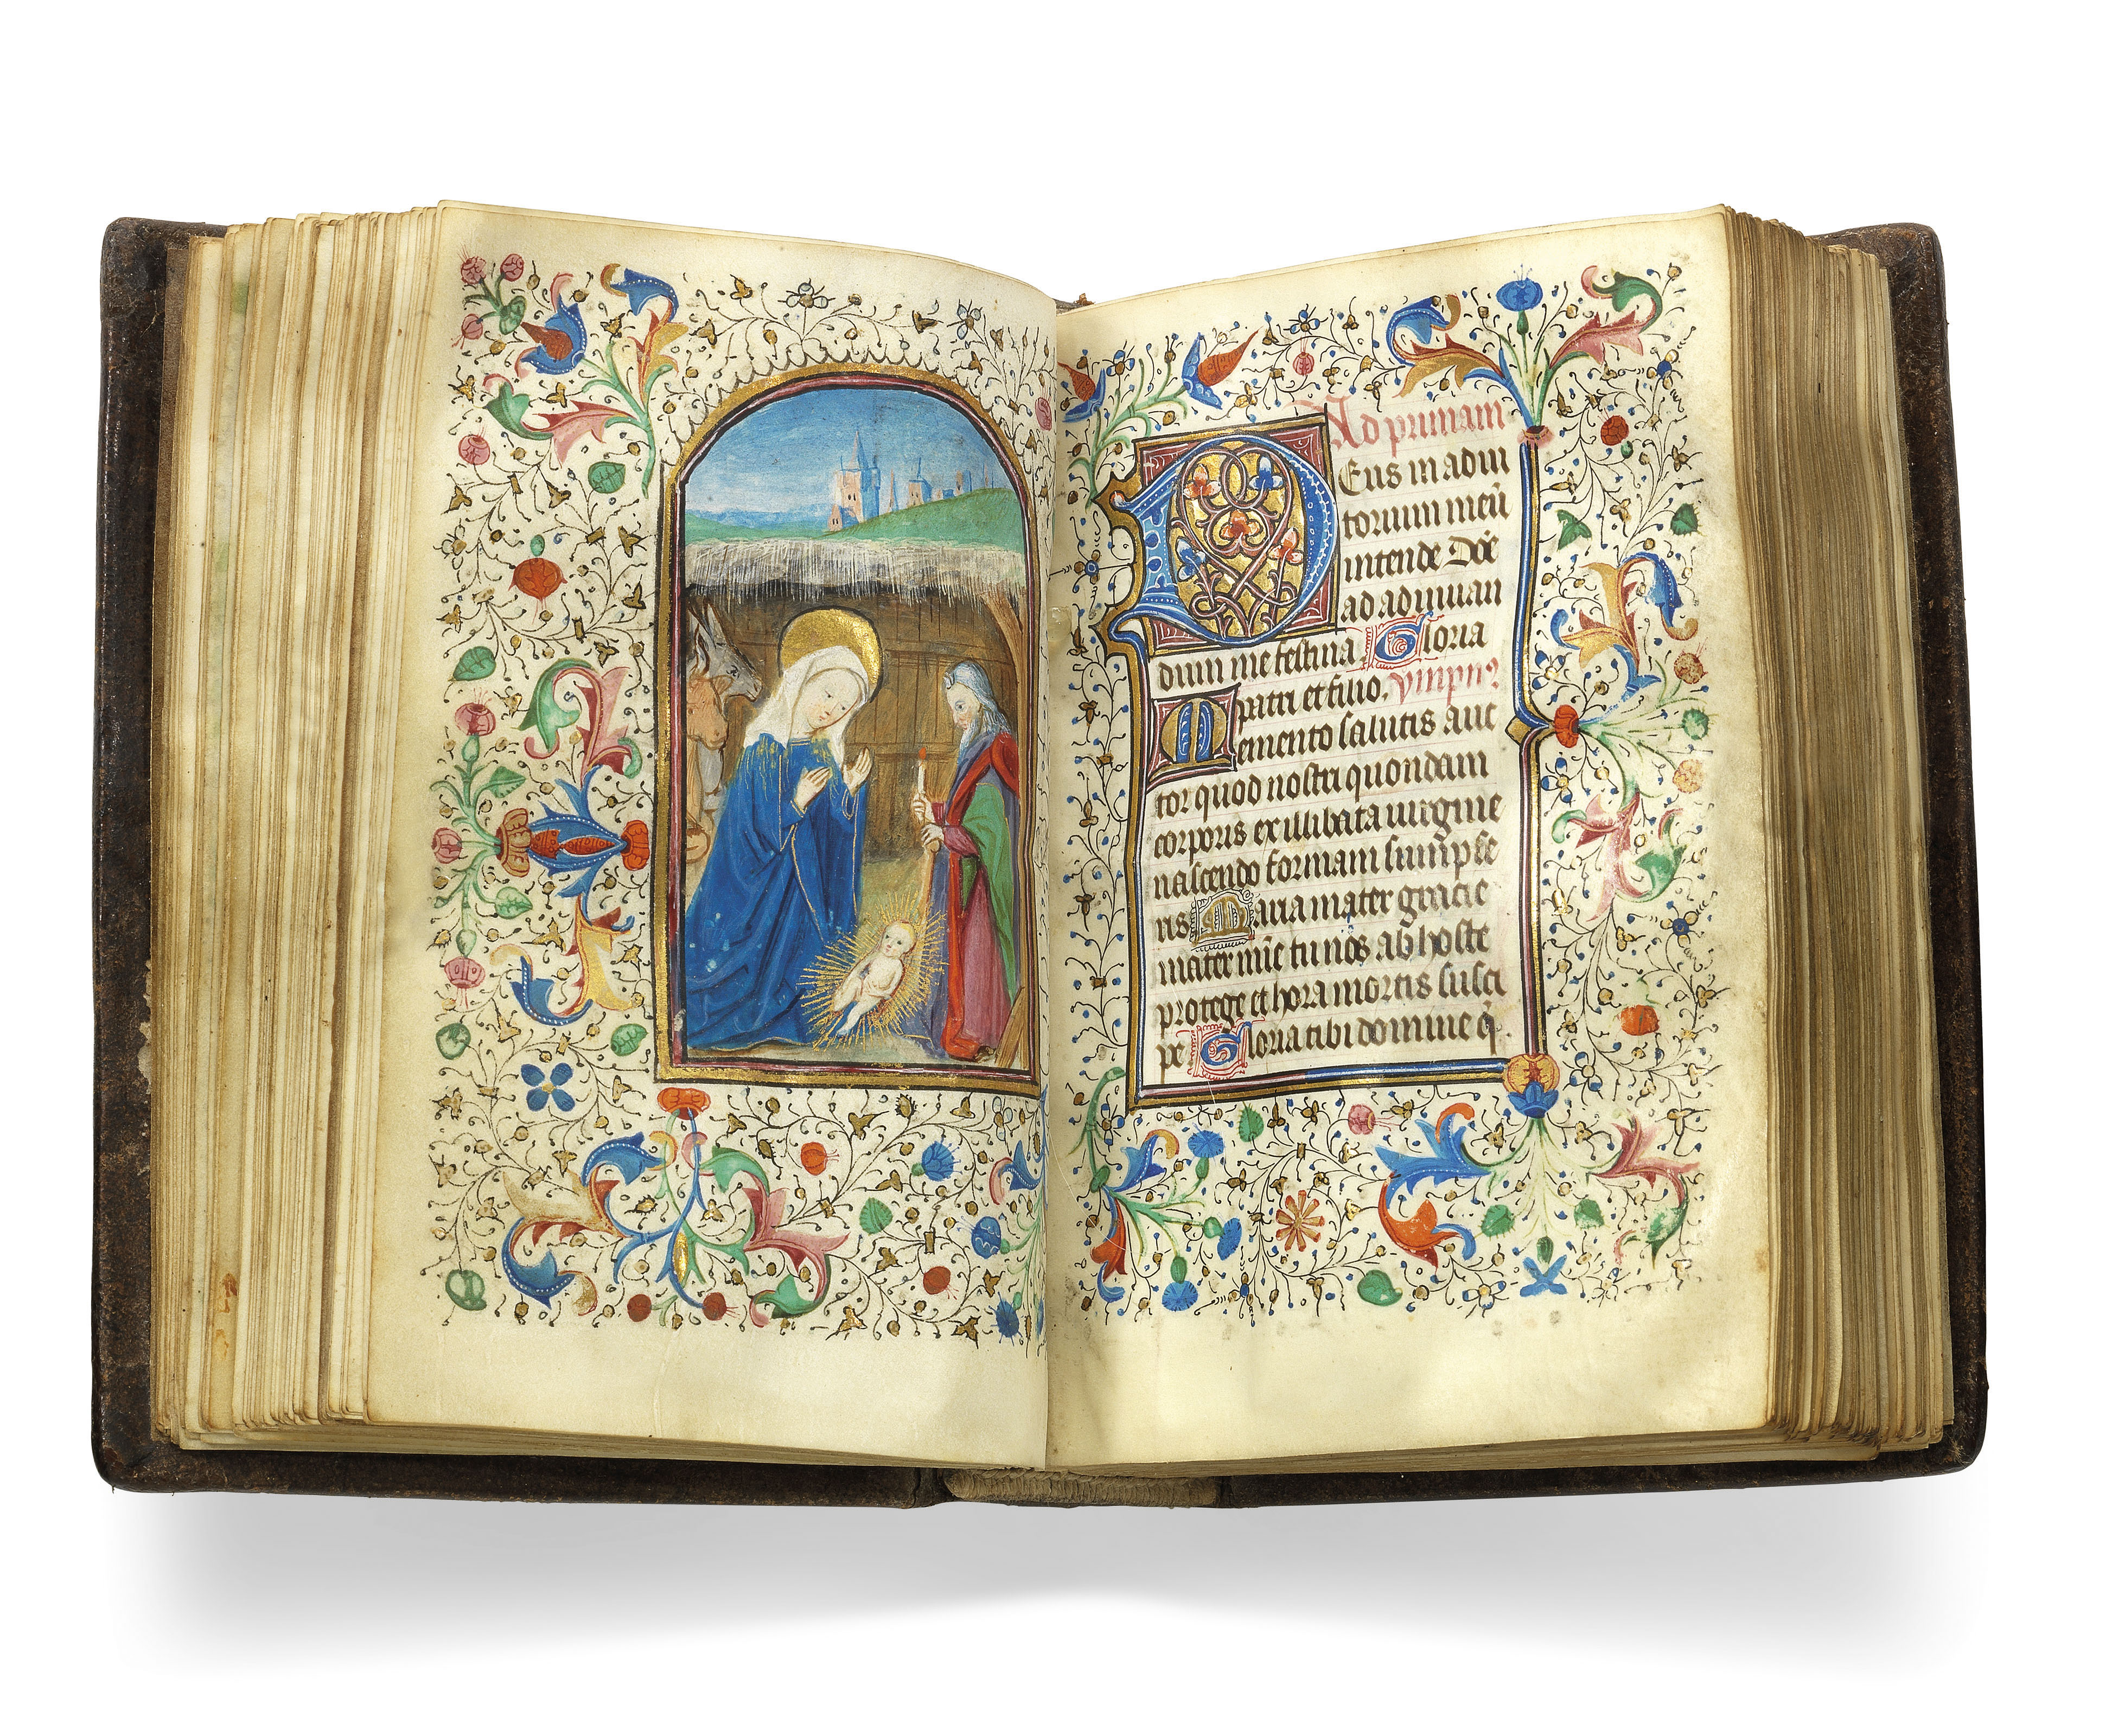 Ad primam
DEus in adiu
torium meū
intende Dn̄e
ad adiuuan
dum me festina. Gloria
patri et filio. ympnꝰ
Memento salutis auc
tor quod nostri quondam
corporis ex illibata uirgine
nascendo formam sumpse
ris Maria mater gracie
mater mīe tu nos ab hoste
protege et hora mortis susci
pe Gloria tibi domine q̄